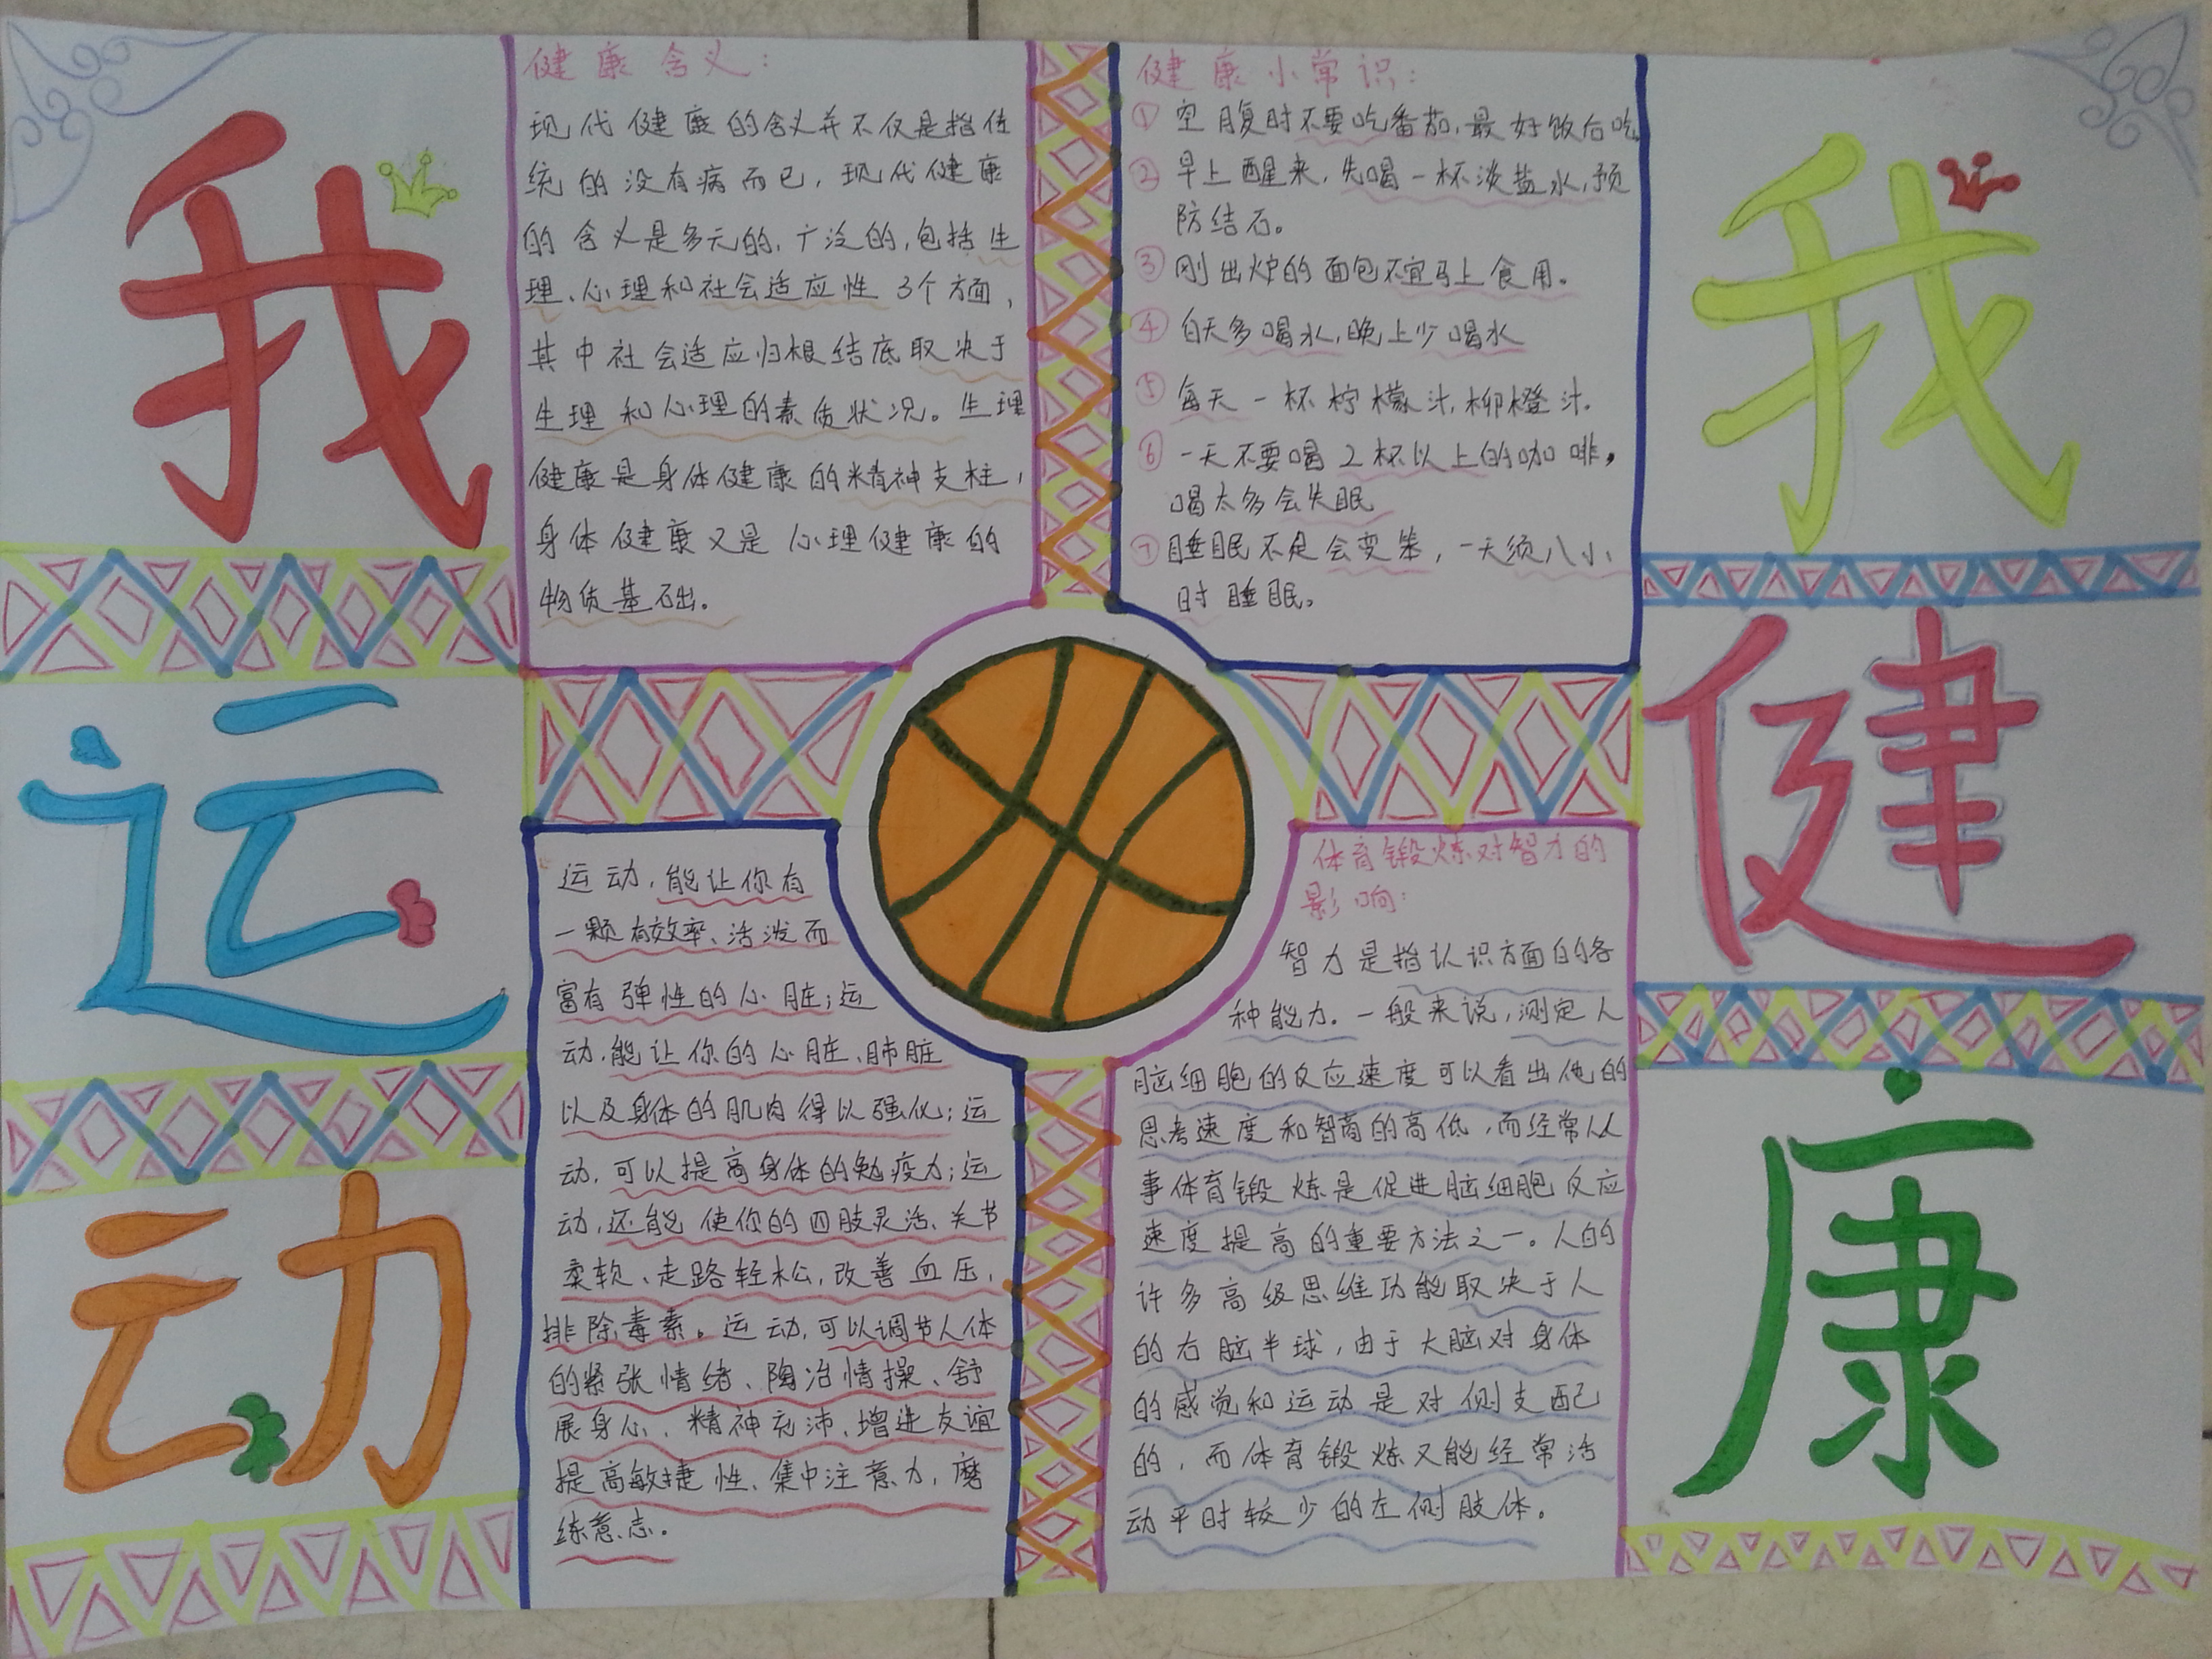 我
运
动
健康含义：
现代健康的含义并不仅是指传
统的没有病而已，现代健康
的含义是多元的，广泛的，包括生
理、心理和社会适应性3个方面，
其中社会适应归根结底取决于
生理和心理的素质状况。生理
健康是身体健康的精神支柱，
身体健康又是心理健康的
物质基础。
健康小常识：
①空腹时不要吃番茄，最好饭后吃
②早上醒来，先喝一杯淡盐水，预
防结石。
③刚出炉的面包不宜马上食用。
④白天多喝水，晚上少喝水
⑤每天一杯柠檬汁，柳橙汁.
⑥一天不要喝2杯以上的咖啡，
喝太多会失眠
⑦睡眠不足会变笨，一天须八小
时睡眠。
运动，能让你有
一颗有效率、活泼而
富有弹性的心脏；运
动，能让你的心脏、肺脏
以及身体的肌肉得以强化；运
动，可以提高身体的勉疫力；运
动，还能使你的四肢灵活、关节
柔软、走路轻松，改善血压，
排除毒素。运动，可以调节人体
的紧张情绪、陶冶情操、舒
展身心、精神充沛、增进友谊
提高敏捷性、集中注意力，磨
练意志。
体育锻炼对智力的
影响：
智力是指认识方面的各
种能力。一般来说，测定人
脑细胞的反应速度可以看出他的
思考速度和智商的高低，而经常从
事体育锻炼是促进脑细胞反应
速度提高的重要方法之一。人的
许多高级思维功能取决于人
的右脑半球，由于大脑对身体
的感觉和运动是对侧支配
的，而体育锻炼又能经常活
动平时较少的左侧肢体。
我
健
康